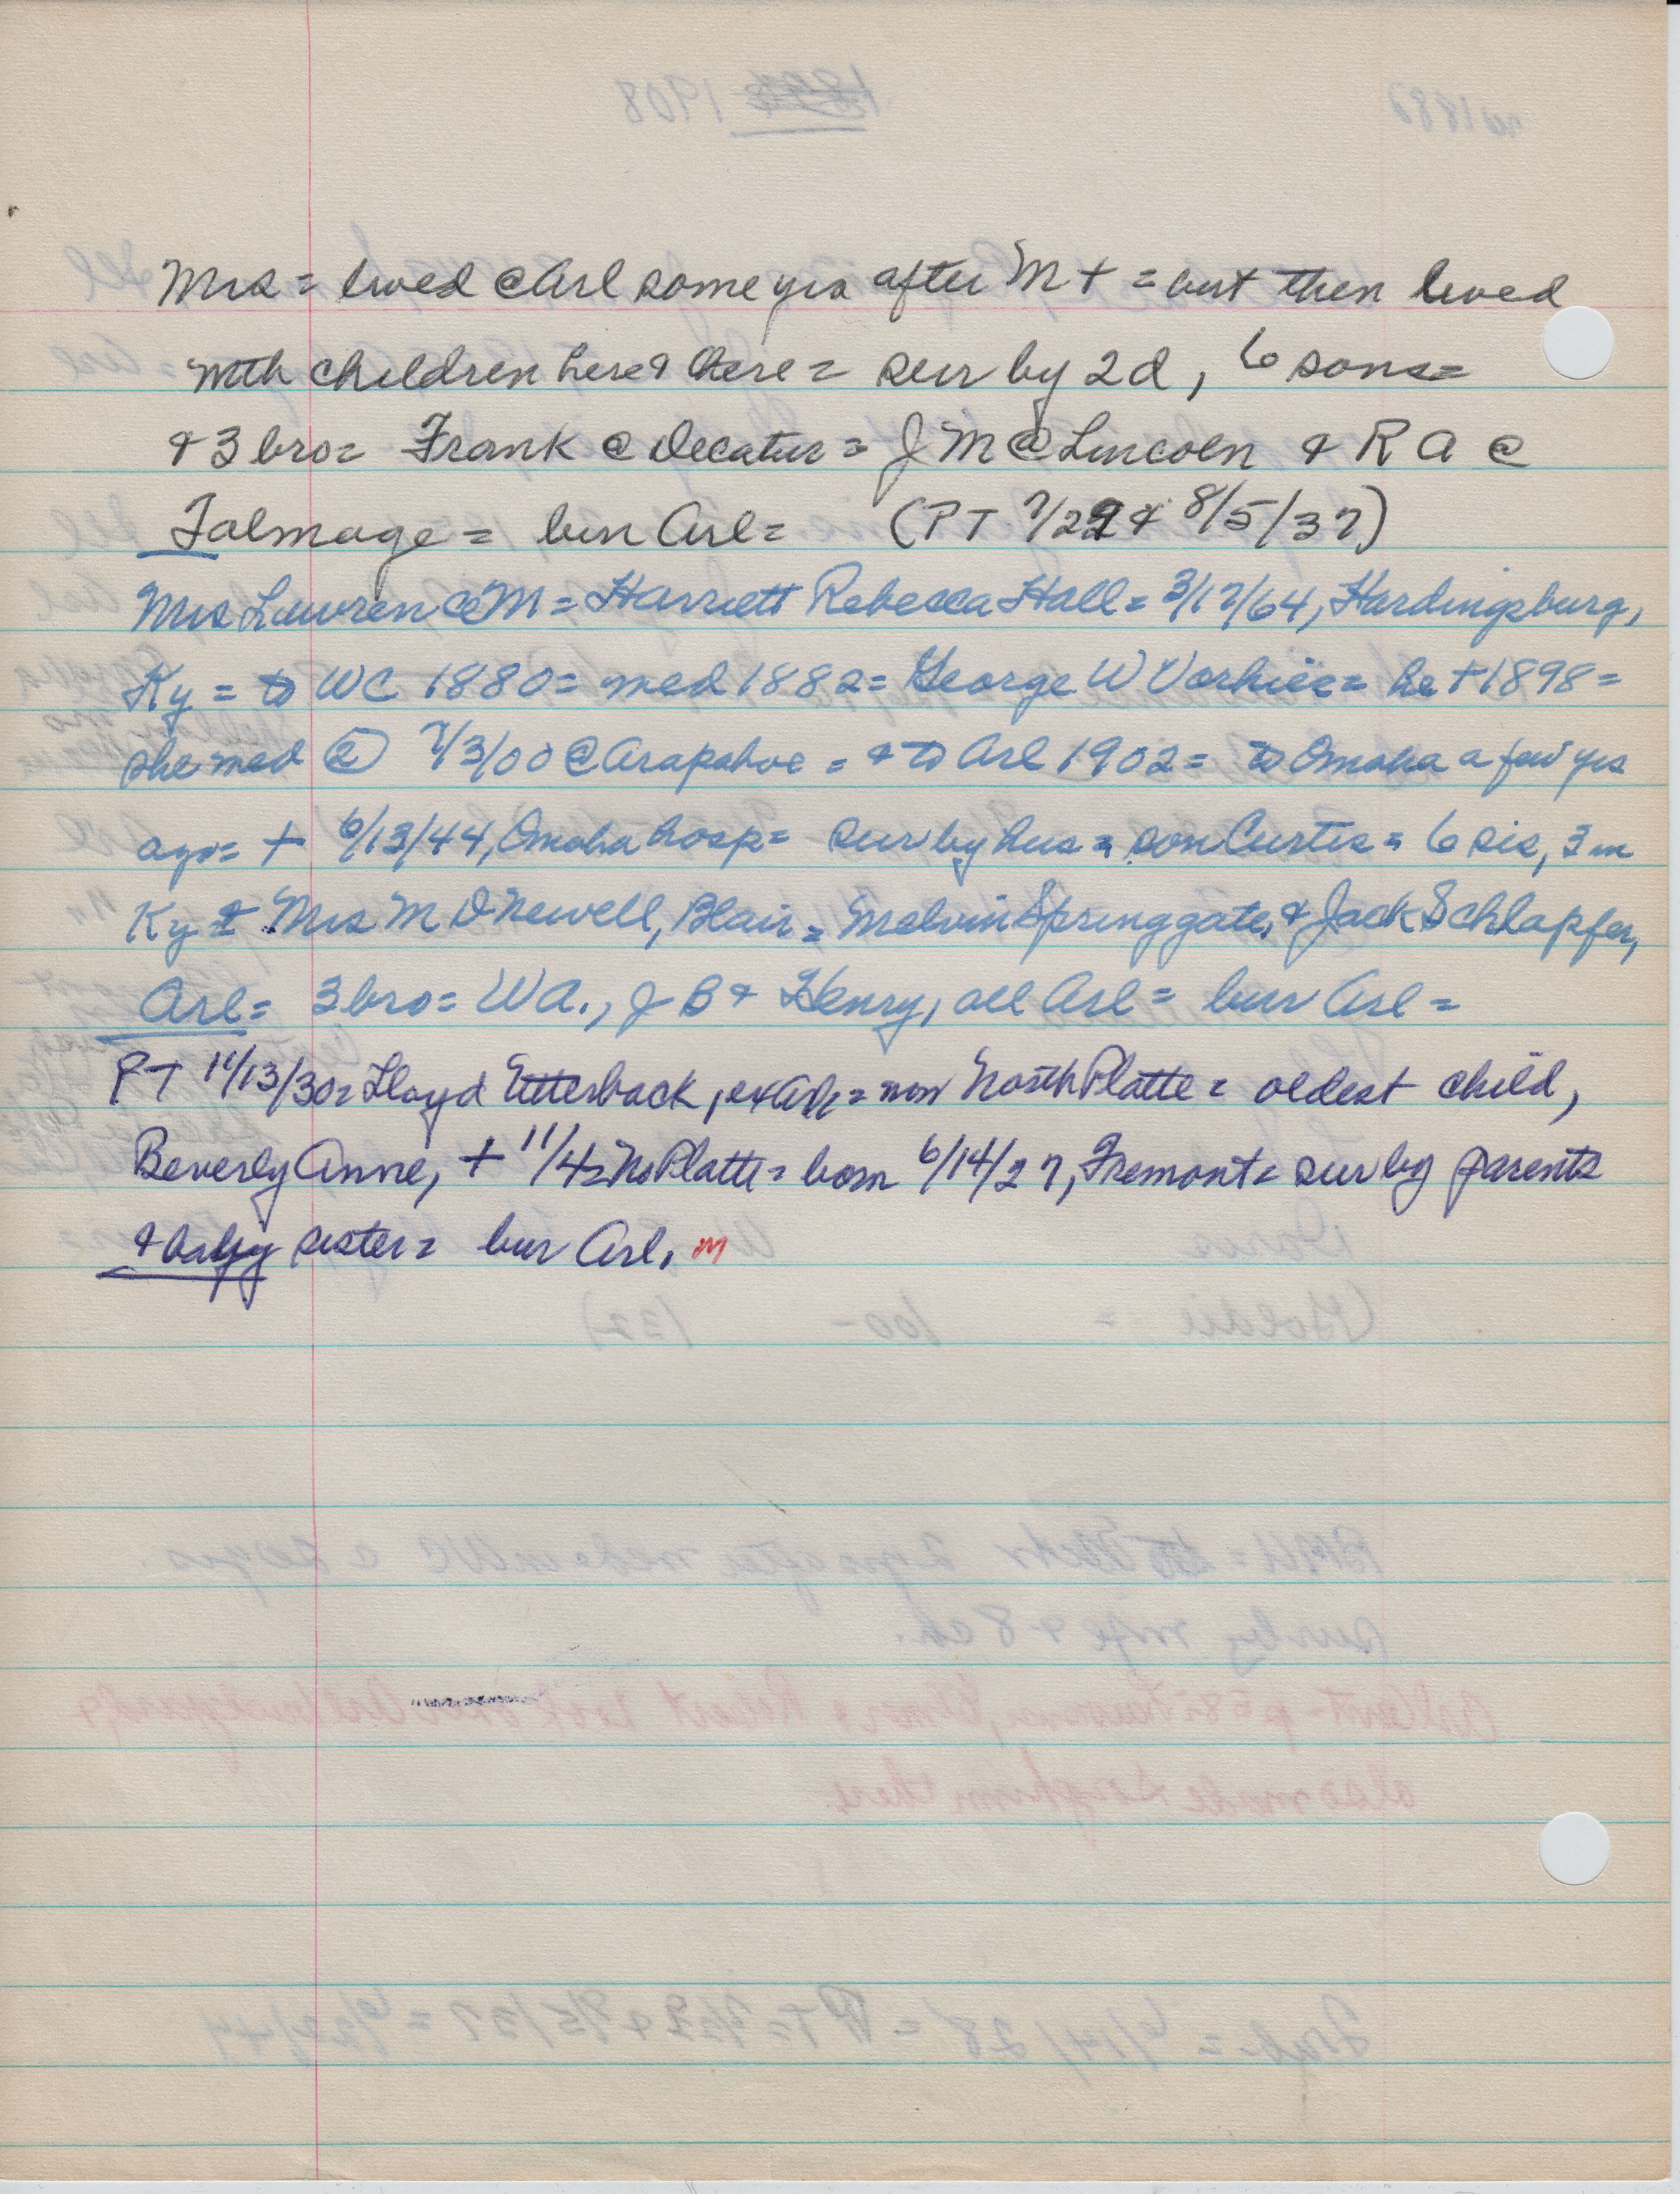 Mrs = lived @ Arl some yrs after M + = but then lived
with children here & there = sur by 2d, 6 sons =
& 3 bro = Frank @ Decatur = J M @ Lincoln & R A @
Talmage = bur Arl = (PT 7/22 & 8/5/37)
Mrs Lawrence M = Harriett Rebecca Hall = 3/17/64, Hardingsburg,
Ky = to WC 1880 = med 1882 = George W Vorhies = he + 1898 =
she med (2) 7/3/00 @ Arapahoe = & to Arl 1902 = to Omaha a few yrs
ago = + 6/13/44, Omaha hosp = sur by hus = son Curtis = 6 sis, 3 in
Ky & Mrs M D Newell, Blair = Melvin Springgate, & Jack Schlapfer,
Arl = 3 bro = W A., J B & Henry, all Arl = bur Arl =
PT 11/13/30 = Lloyd Utterback, ex Arl = now North Platte = oldest child,
Beverly Anne, + 11/4 = No Platte = born 6/14/27, Fremont = sur by parents
& baby sister = bur Arl. M